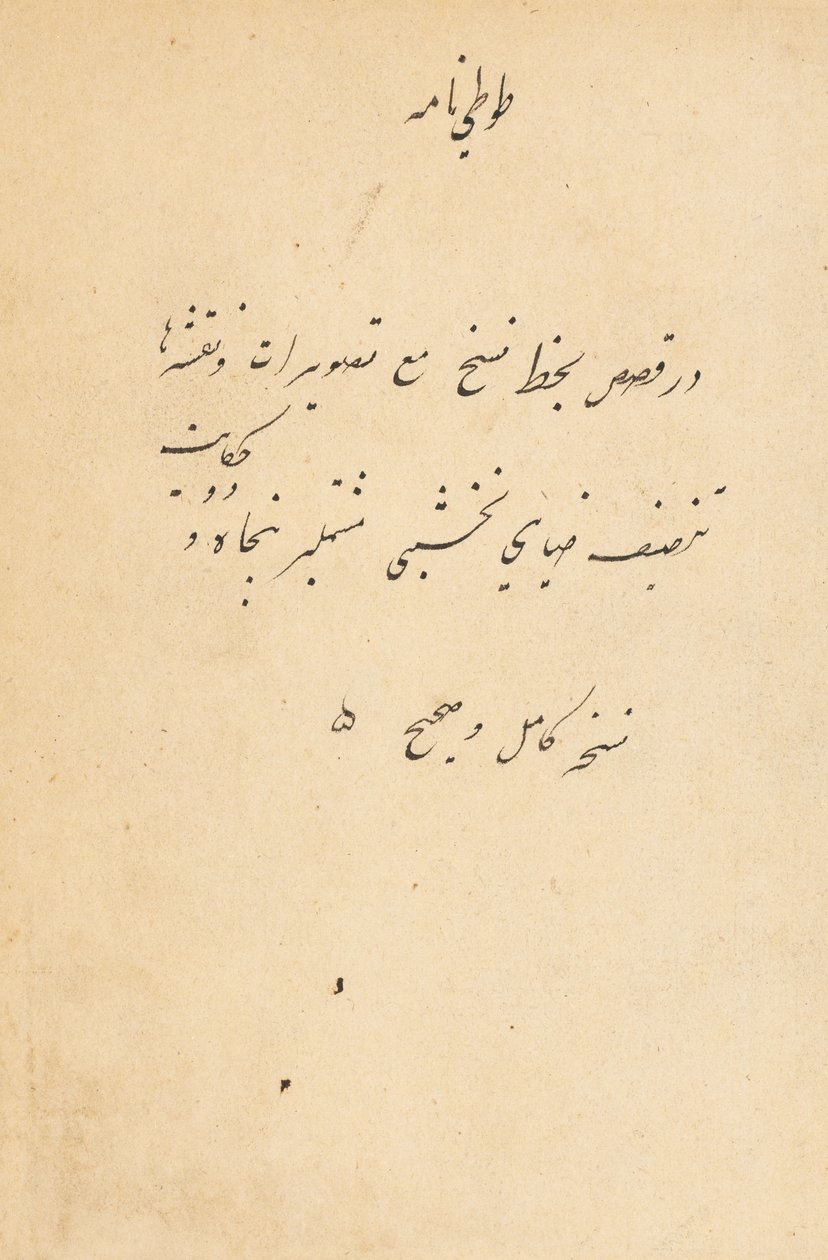 طوطي نامه
در قصص بخط نسخ مع تصويرات و نقشه ها
تصنيف ضيايي نخشبی مشتملبر پنجاه و دو
حکايت
نسخه کامل و صحيح